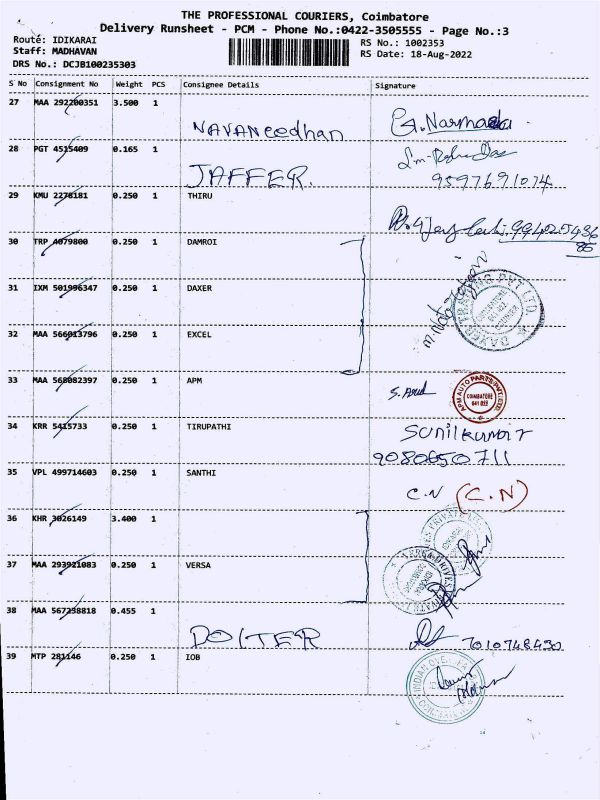 THE PROFESSIONAL COURIERS, Coimbatore
Delivery Runsheet - PCM - Phone No.:0422-3505555 - Page No.:3
Route: IDIKARAI
RS No.: 1002353
Staff: MADHAVAN
RS Date: 18-Aug-2022
DRS No.: DCJB100235303
S No Consignment No Weight PCS Consignee Details Signature
27 MAA 292200351 3.500 1
NAVANEEDHAN G.Narmada
28 PGT 4515409 0.165 1
JAFFER. 9597691074
29 KMU 2278181 0.250 1 THIRU
9942543686
30 TRP 4079800 0.250 1 DAMROI
31 IXM 501996347 0.250 1 DAXER
32 MAA 566013796 0.250 1 EXCEL
33 MAA 568082397 0.250 1 APM
APM AUTO PARTS PVT. LTD. COIMBATORE 641 022
34 KRR 5415733 0.250 1 TIRUPATHI SUNILKUMAR
9080650711
35 VPL 499714603 0.250 1 SANTHI
C.N (C.N)
36 KHR 3026149 3.400 1
37 MAA 293921083 0.250 1 VERSA
38 MAA 567238818 0.455 1
DOITER 7010748430
39 MTP 281146 0.250 1 IOB